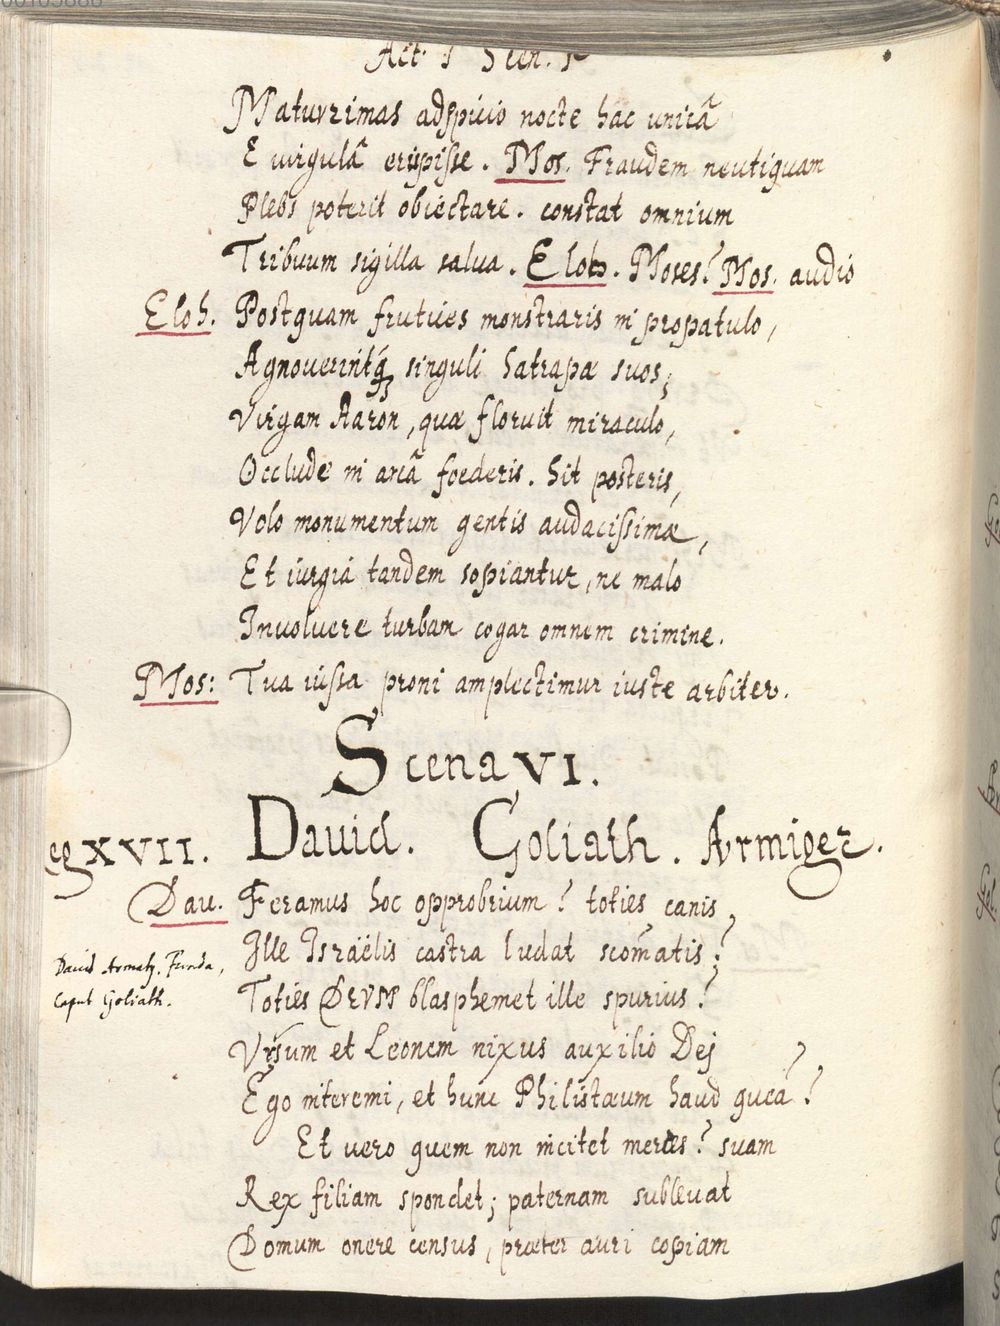 Act. I Scen. V
Maturrimas adspicio nocte hac unicâ
E uirgulâ erupisse. Mos. Fraudem neutiquam
Plebs poterit obiectare. constat omnium
Tribuum sigilla salua. Eloh. Moses? Mos. audio
Eloh. Postquam fruticēs monstraris in propatulo,
Agnouerintq3 singuli Satrapæ suos;
Virgam Aaron, quæ floruit miraculo,
Occlude in arcâ foederis. Sit posteris,
Volo monumentum gentis audacissimæ,
Et iurgia tandem sopiantur, ne malo
Inuoluere turbam cogar omnem crimine.
Mos: Tua iussa proni amplectimur iuste arbiter.
Scena VI.
eg XVII. Dauid. Goliath. Armiger.
Dau. Feramus hoc opprobrium? toties canis
Ille Israëlis castra ludat scom̄atis?
Dauid Armat9. Funda,
Caput Goliath.
Toties DEVM blasphemet ille spurius?
Vrsum et Leonem nixus auxilio Dej
Ego interemi, et hunc Philistæum haud queā?
Et uero quem non incitet merces? suam
Rex filiam spondet; paternam subleuat
Domum onere census, præter auri copiam